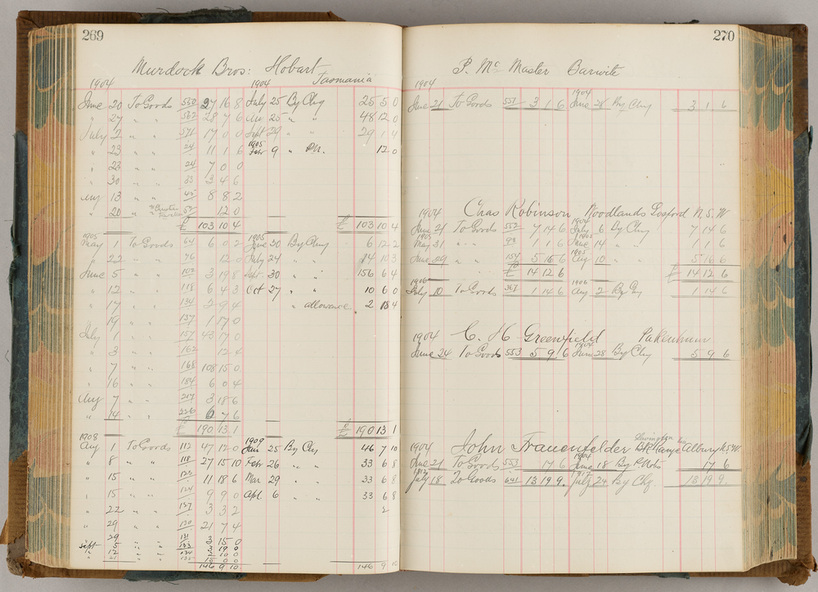 269
Murdock Bros: Hobart
Tasmania
1904 1904
June 20 To Goods 37 16 8 July 25 By Chq 25 5 0
" 27 " " 28 7 6 Aug 25 " " 48 12 0
July 2 " " 571 17 0 0 Sept 29 " " 29 1 4
" 23 " " 24 11 1 6 1905 9 " 12 0
" 23 " " 24 7 0 0
" 30 " " 33 3 4 6
Aug 13 " " 45 8 8 2
" 20 " " 12 0
£ 103 10 4 £ 103 10 4
1905 1905
May 1 To Goods 64 6 0 2 June 30 By Chq 6 12 2
" 22 " " 96 12 0 July 24 " 14 10 3
June 5 " " 109 3 19 8 30 " 156 6 4
" 12 " " 118 6 4 3 Oct 27 " 10 6 0
" 17 " " 134 2 9 4 " allowance 2 13 4
" 19 " " 137 1 17 0
July 1 " " 157 43 17 0
" 3 " " 162 12 0
" 7 " " 168 108 15 0
" 16 " " 184 6 0 4
Aug 7 " " 217 3 18 6
" 14 " " 226 6 7 6
£ 190 13 1 £ 190 13 1
1908 1909
Aug 1 To Goods 112 47 12 0 Jan 25 By Chq 46 7 10
" 8 " " 118 27 15 10 Feb 26 " " 33 6 8
" 15 " " 11 18 6 Mar 29 " " 33 6 8
" 15 " " 9 9 0 Apl 6 " " 33 6 8
" 22 " " 137 3 3 2
" 29 " " 130 21 7 4
" 29 " " 131 3 15 0
Sept 5 " " 133 2 19 0
" 12 " " 10 0
146 9 10 146 9 10
270
P. McMaster Barwite
1904 1904
June 21 To Goods 3 1 6 June 28 By Chq 3 1 6
Chas Robinson Woodlands Gosford N.S.W
1904 1904
June 21 To Goods 552 7 14 6 July 6 By Chq 7 14 6
1905 1905
May 31 " " 99 1 1 6 June 14 " 1 1 6
June 29 " " 154 5 16 6 Aug 10 " 5 16 6
£ 14 12 6 £ 14 12 6
1906 1906
July 10 To Goods 368 1 14 6 Aug 2 By Chq 1 14 6
C. H Greenfield Pakenham
1904 1904
June 24 To Goods 553 5 9 6 June 28 By Chq 5 9 6
John Frauenfelder Albury N.S.W.
1904
June 27 To Goods 553 17 6 June 18 By 17 6
July 18 To Goods 641 13 19 9 July 24 By Chq 13 19 9